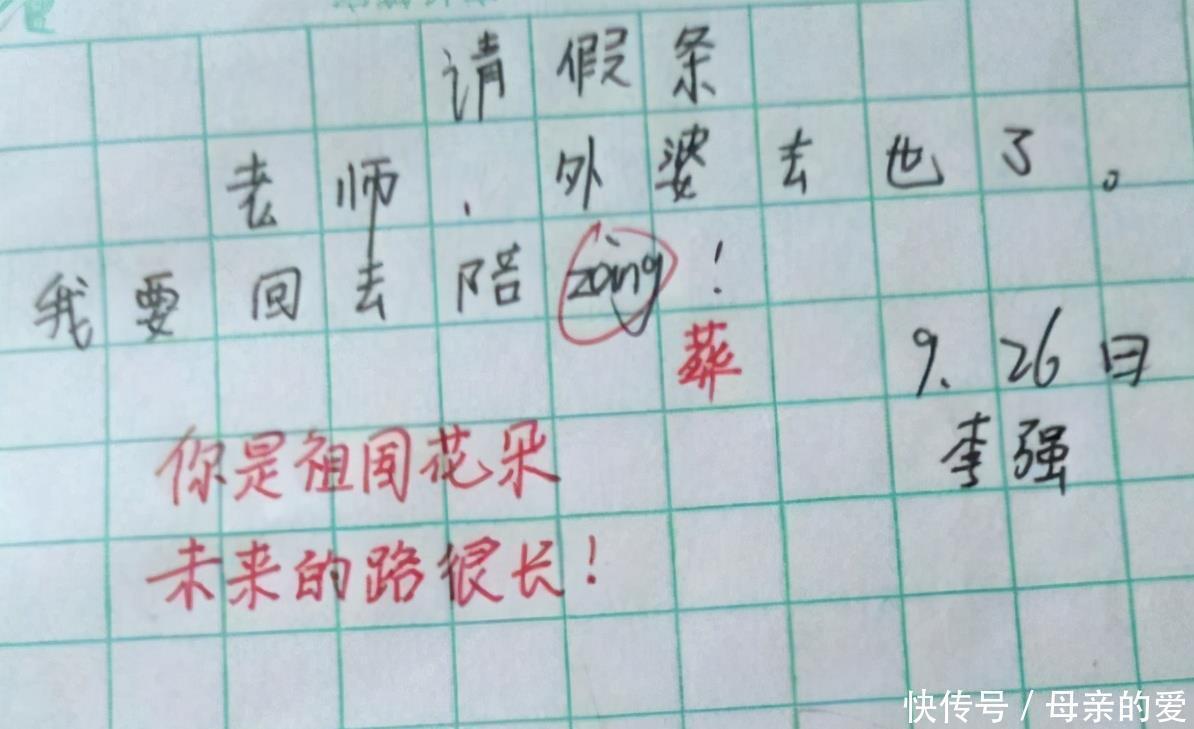 请假条
老师，外婆去也了。
我要回去陪zàng！
葬
9.26日
李强
你是祖国花朵
未来的路很长！
快传号/母亲的爱